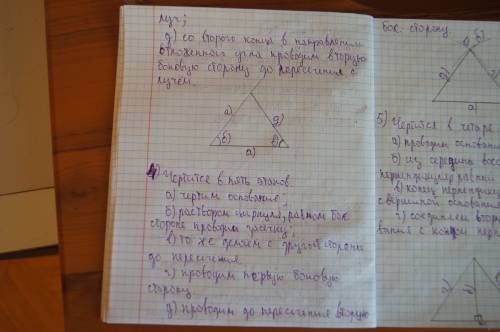 луч;
д) со второго конца в направлении
отложенного угла проводим вторую
боковую сторону до пересечения с
лучем.
а)
д)
б)
в)
а)
4) Чертится в пять этапов
а) чертим основание;
б) раствором циркуля, равном бок.
стороне проводим засечку;
в) то же делаем с другой стороны
до пересечения
г) проводим первую боковую
сторону
д) проводим до пересечения вторую
бок. сторону
б)
а)
5) Чертится в четыре
а) проводим основани
б) из середины восс
перпендикуляр равный
в) конец перпендик
с вершиной основания
г) соединяем втор
вания с концом перп